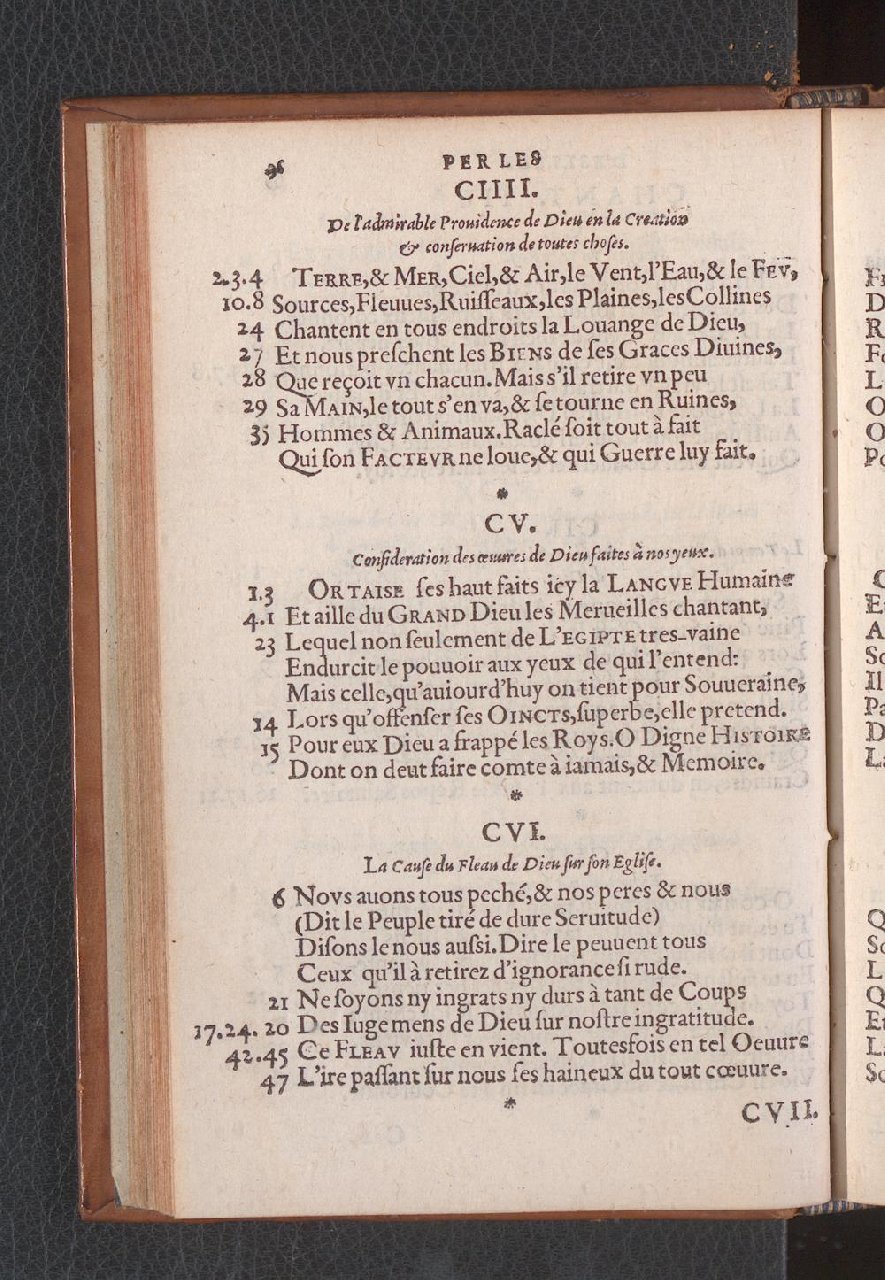 96 PERLES
CIIII.
De l'admirable Prouidence de Dieu en la Creation
& conſeruation de toutes choſes.
2.3.4 TERRE,& MER,Ciel,& Air,le Vent,l'Eau,& le FEV,
10.8 Sources,Fleuues,Ruiſſeaux,les Plaines,les Collines
24 Chantent en tous endroits la Louange de Dieu,
27 Et nous preſchent les BIENS de ſes Graces Diuines,
28 Que reçoit vn chacun.Mais s'il retire vn peu
29 Sa MAIN,le tout s'en va,& ſe tourne en Ruines,
35 Hommes & Animaux.Raclé ſoit tout à fait
Qui ſon FACTEVR ne loue,& qui Guerre luy fait.
*
CV.
Conſideration des œuures de Dieu faites à nos yeux.
1.3 ORTAISE ſes haut faits icy la LANGVE Humaine
4.1 Et aille du GRAND Dieu les Merueilles chantant,
23 Lequel non ſeulement de L'EGIPTE tres-vaine
Endurcit le pouuoir aux yeux de qui l'entend:
Mais celle,qu'auiourd'huy on tient pour Souueraine,
14 Lors qu'offenſer ſes OINCTS,ſuperbe,elle pretend.
15 Pour eux Dieu a frappé les Roys.O Digne HISTOIRE
Dont on deut faire comte à iamais,& Memoire.
*
CVI.
La Cauſe du Fleau de Dieu ſur ſon Egliſe.
6 Novs auons tous peché,& nos peres & nous
(Dit le Peuple tiré de dure Seruitude)
Diſons le nous auſsi.Dire le peuuent tous
Ceux qu'il à retirez d'ignorance ſi rude.
21 Ne ſoyons ny ingrats ny durs à tant de Coups
17.24. 20 Des Iugemens de Dieu ſur noſtre ingratitude.
42.45 Ce FLEAV iuſte en vient. Toutesfois en tel Oeuure
47 L'ire paſſant ſur nous ſes haineux du tout cœuure.
*
CVII.